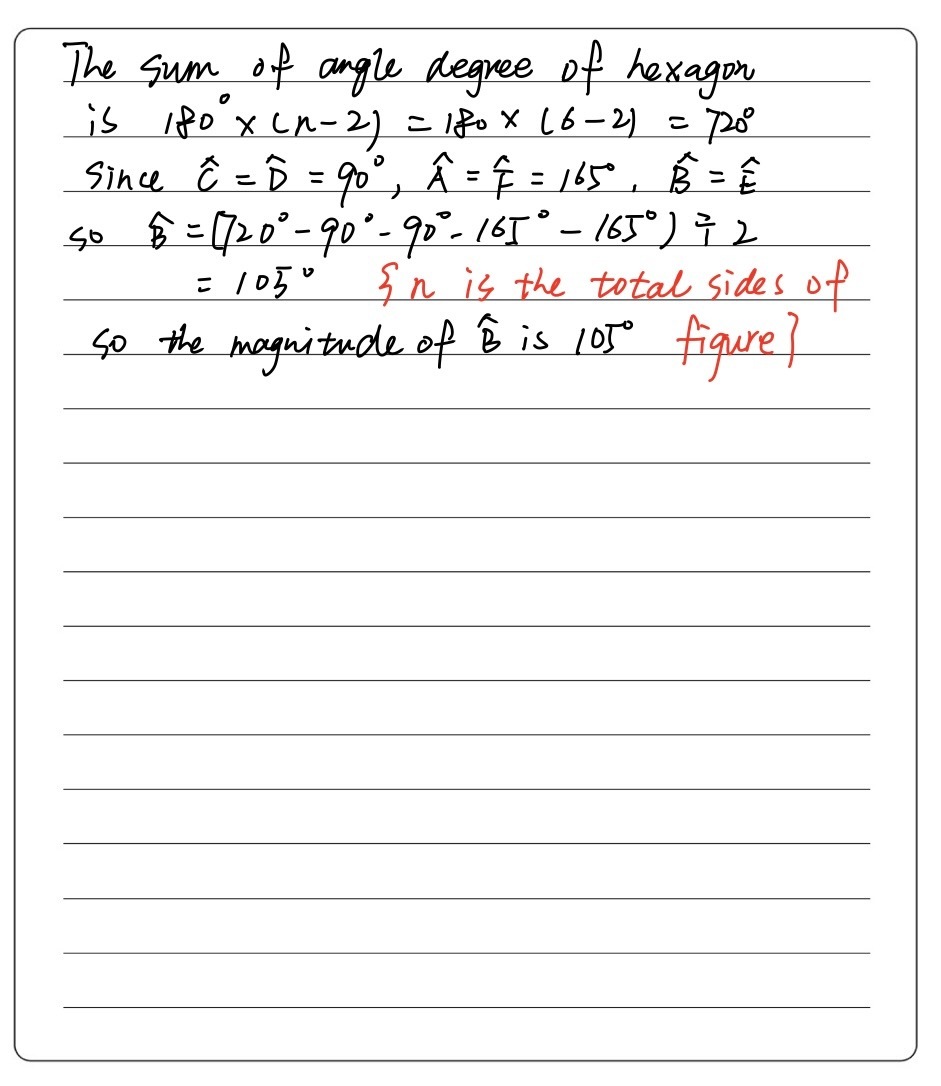 The sum of angle degree of hexagon
is 180° × (n-2) = 180 × (6-2) = 720°
Since Ĉ = D̂ = 90°, Â = F̂ = 165°, B̂ = Ê
so B̂ = (720° - 90° - 90° - 165° - 165°) ÷ 2
= 105° {n is the total sides of
so the magnitude of B̂ is 105° figure}